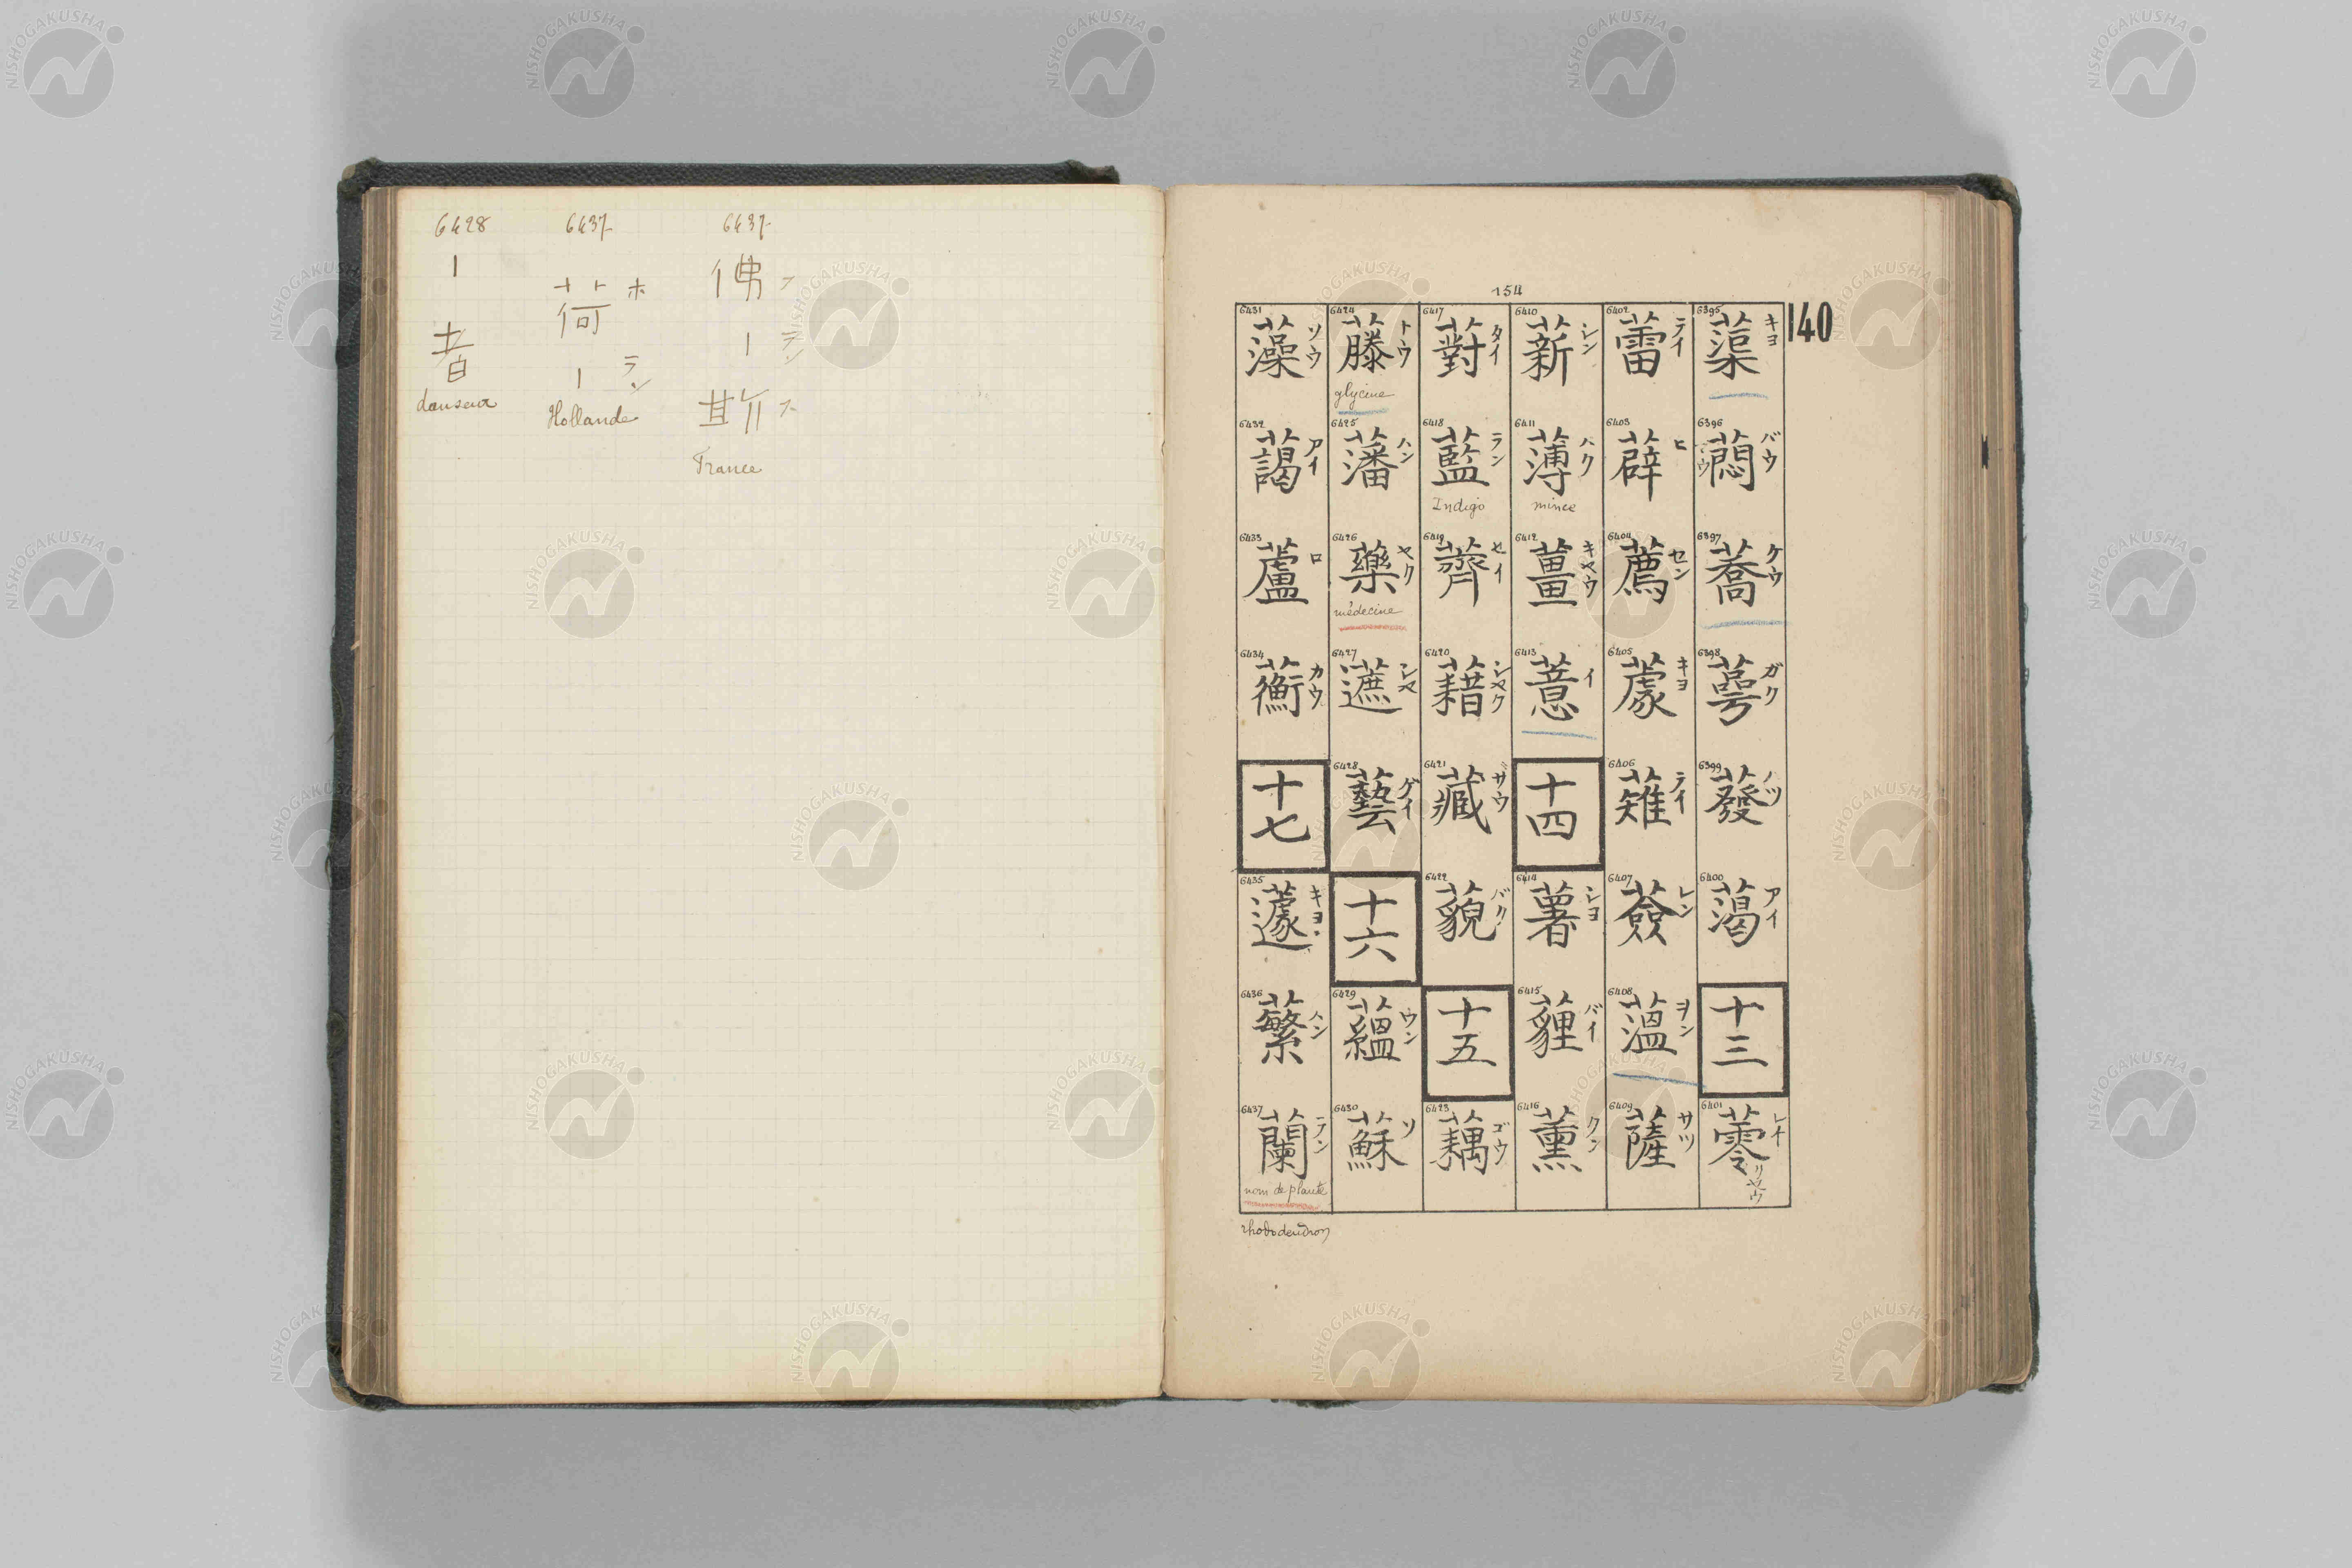 6428
｜
者
danseur
6437
荷 ホ
｜ ラン
Hollande
6437
佛 フ
｜ ラン
斯 ス
France
154
140
6395 蕖 キヨ
6396 蕄 バウ
6397 蕎 ケウ
6398 蕚 ガク
6399 蕟 ハツ
6400 蔼 アイ
十三
6401 蕶 レイ リヤウ
6402 蕾 ライ
6403 薜 ヒ
6404 薦 セン
6405 蘧 キヨ
6406 薙 テイ
6407 薟 レン
6408 薀 ヲン
6409 薩 サツ
6410 薪 シン
6411 薄 ハク
mince
6412 薑 キヤウ
6413 薏 イ
十四
6414 薯 シヨ
6415 薶 バイ
6416 薫 クン
6417 薱 タイ
6418 藍 ラン
Indigo
6419 薺 セイ
6420 藉 シヤク
6421 藏 ザウ
6422 藐 バク
十五
6423 藕 ゴウ
6424 藤 トウ
glycine
6425 藩 ハン
6426 藥 ヤク
médecine
6427 蔗 シヤ
6428 藝 ゲイ
十六
6429 蘊 ウン
6430 蘇 ソ
6431 藻 ソウ
6432 藹 アイ
6433 蘆 ロ
6434 蘅 カウ
十七
6435 蘧 キヨ
6436 蘩 ハン
6437 蘭 ラン
nom de plante
rhododendron
NISHOGAKUSHA